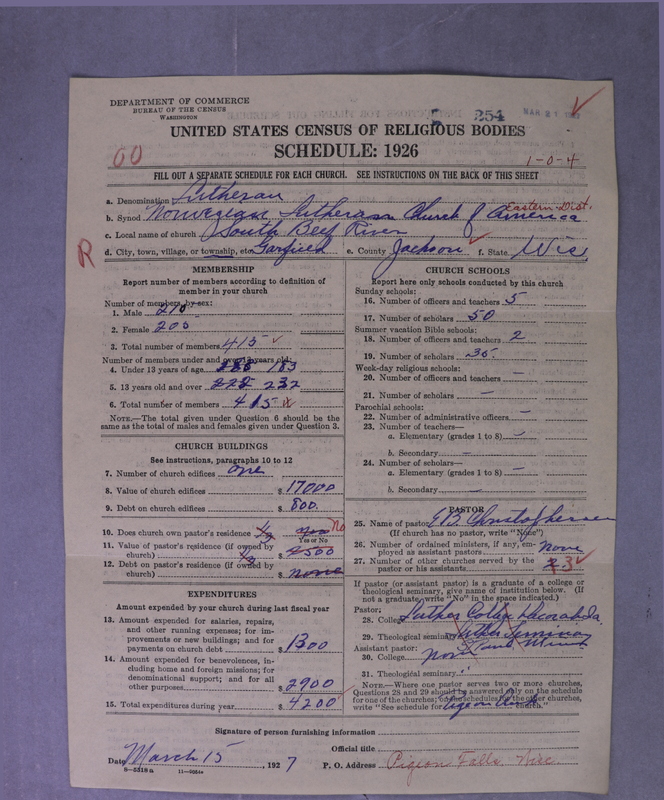 DEPARTMENT OF COMMERCE
BUREAU OF THE CENSUS
WASHINGTON
254
MAR 21
UNITED STATES CENSUS OF RELIGIOUS BODIES
SCHEDULE: 1926
1-0-4
FILL OUT A SEPARATE SCHEDULE FOR EACH CHURCH. SEE INSTRUCTIONS ON THE BACK OF THIS SHEET
a. Denomination Lutheran
b. Synod Norwegian Lutheran Church of America Eastern Dist.
c. Local name of church South Beef River
R
d. City, town, village, or township, etc. Garfield e. County Jackson f. State Wis
MEMBERSHIP
Report number of members according to definition of member in your church
Number of members, by sex:
1. Male 210
2. Female 205
3. Total number of members 415
Number of members under and over 13 years old:
4. Under 13 years of age 183
5. 13 years old and over 232
6. Total number of members 415
NOTE.—The total given under Question 6 should be the same as the total of males and females given under Question 3.
CHURCH BUILDINGS
See instructions, paragraphs 10 to 12
7. Number of church edifices one
8. Value of church edifices $ 17000
9. Debt on church edifices $ 800.
10. Does church own pastor's residence 1/2 No
Yes or No
11. Value of pastor's residence (if owned by church) 1/2 $ 2500
12. Debt on pastor's residence (if owned by church) $ none
EXPENDITURES
Amount expended by your church during last fiscal year
13. Amount expended for salaries, repairs, and other running expenses; for improvements or new buildings; and for payments on church debt $ 1300
14. Amount expended for benevolences, including home and foreign missions; for denominational support; and for all other purposes $ 2900
15. Total expenditures during year $ 4200
CHURCH SCHOOLS
Report here only schools conducted by this church
Sunday schools:
16. Number of officers and teachers 5
17. Number of scholars 50
Summer vacation Bible schools:
18. Number of officers and teachers 2
19. Number of scholars 35
Week-day religious schools:
20. Number of officers and teachers —
21. Number of scholars —
Parochial schools:
22. Number of administrative officers —
23. Number of teachers—
a. Elementary (grades 1 to 8) —
b. Secondary —
24. Number of scholars—
a. Elementary (grades 1 to 8) —
b. Secondary —
PASTOR
25. Name of pastor E B Christophersen
(If church has no pastor, write "None")
26. Number of ordained ministers, if any, employed as assistant pastors None
27. Number of other churches served by the pastor or his assistants 3
If pastor (or assistant pastor) is a graduate of a college or theological seminary, give name of institution below. (If not a graduate, write "No" in the space indicated.)
Pastor:
28. College Luther College Decorah Ia.
29. Theological seminary Luther Seminary
St Paul Minn
Assistant pastor:
30. College None
31. Theological seminary
NOTE.—Where one pastor serves two or more churches, Questions 28 and 29 should be answered only on the schedule for one of the churches; on the schedules for the other churches, write "See schedule for Pigeon Creek church."
Signature of person furnishing information
Official title
Date March 15, 1927 P. O. Address Pigeon Falls, Wisc
8-5318a 11-9054a